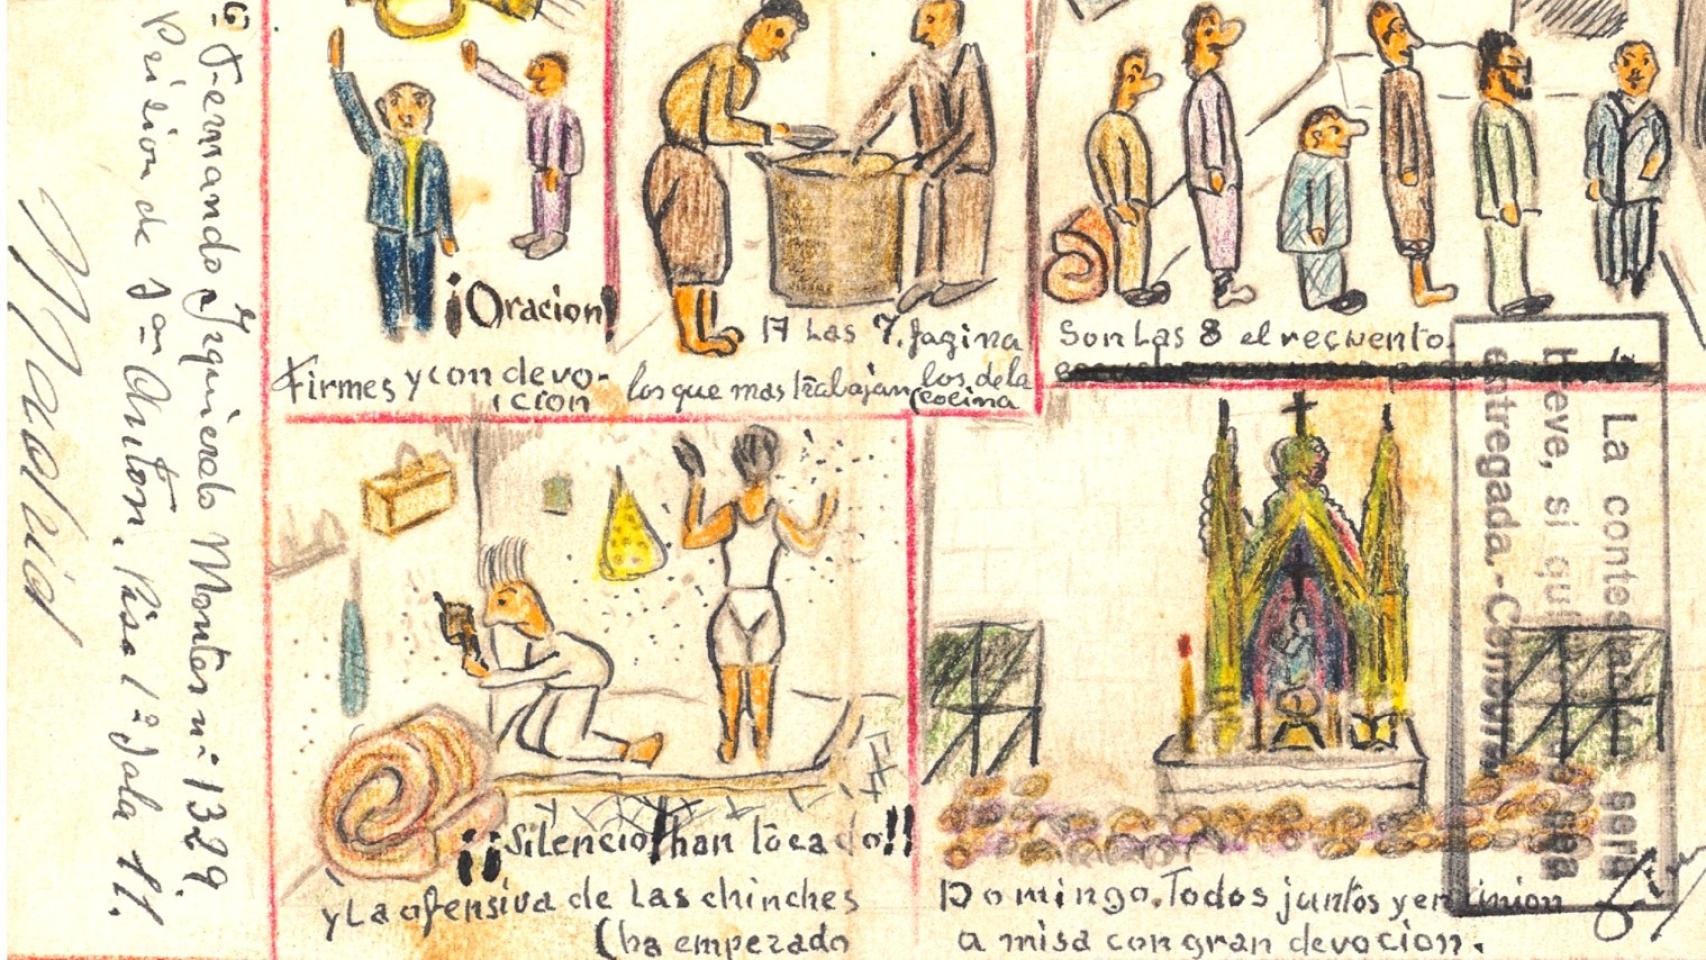 Fernando Izquierdo Montes nº 1329.
Prision de San Anton. Piso 1º Sala 11.
Madrid
¡Oracion!
Firmes y con devo-
cion
A las 7. fagina
los que mas trabajan los de la
(cocina
Son las 8 el recuento.
¡¡Silencio han tocado!!
y La ofensiva de las chinches
(ha empezado
Domingo. Todos juntos y en union
a misa con gran devocion.
La contestación será
breve, si
entregada.-